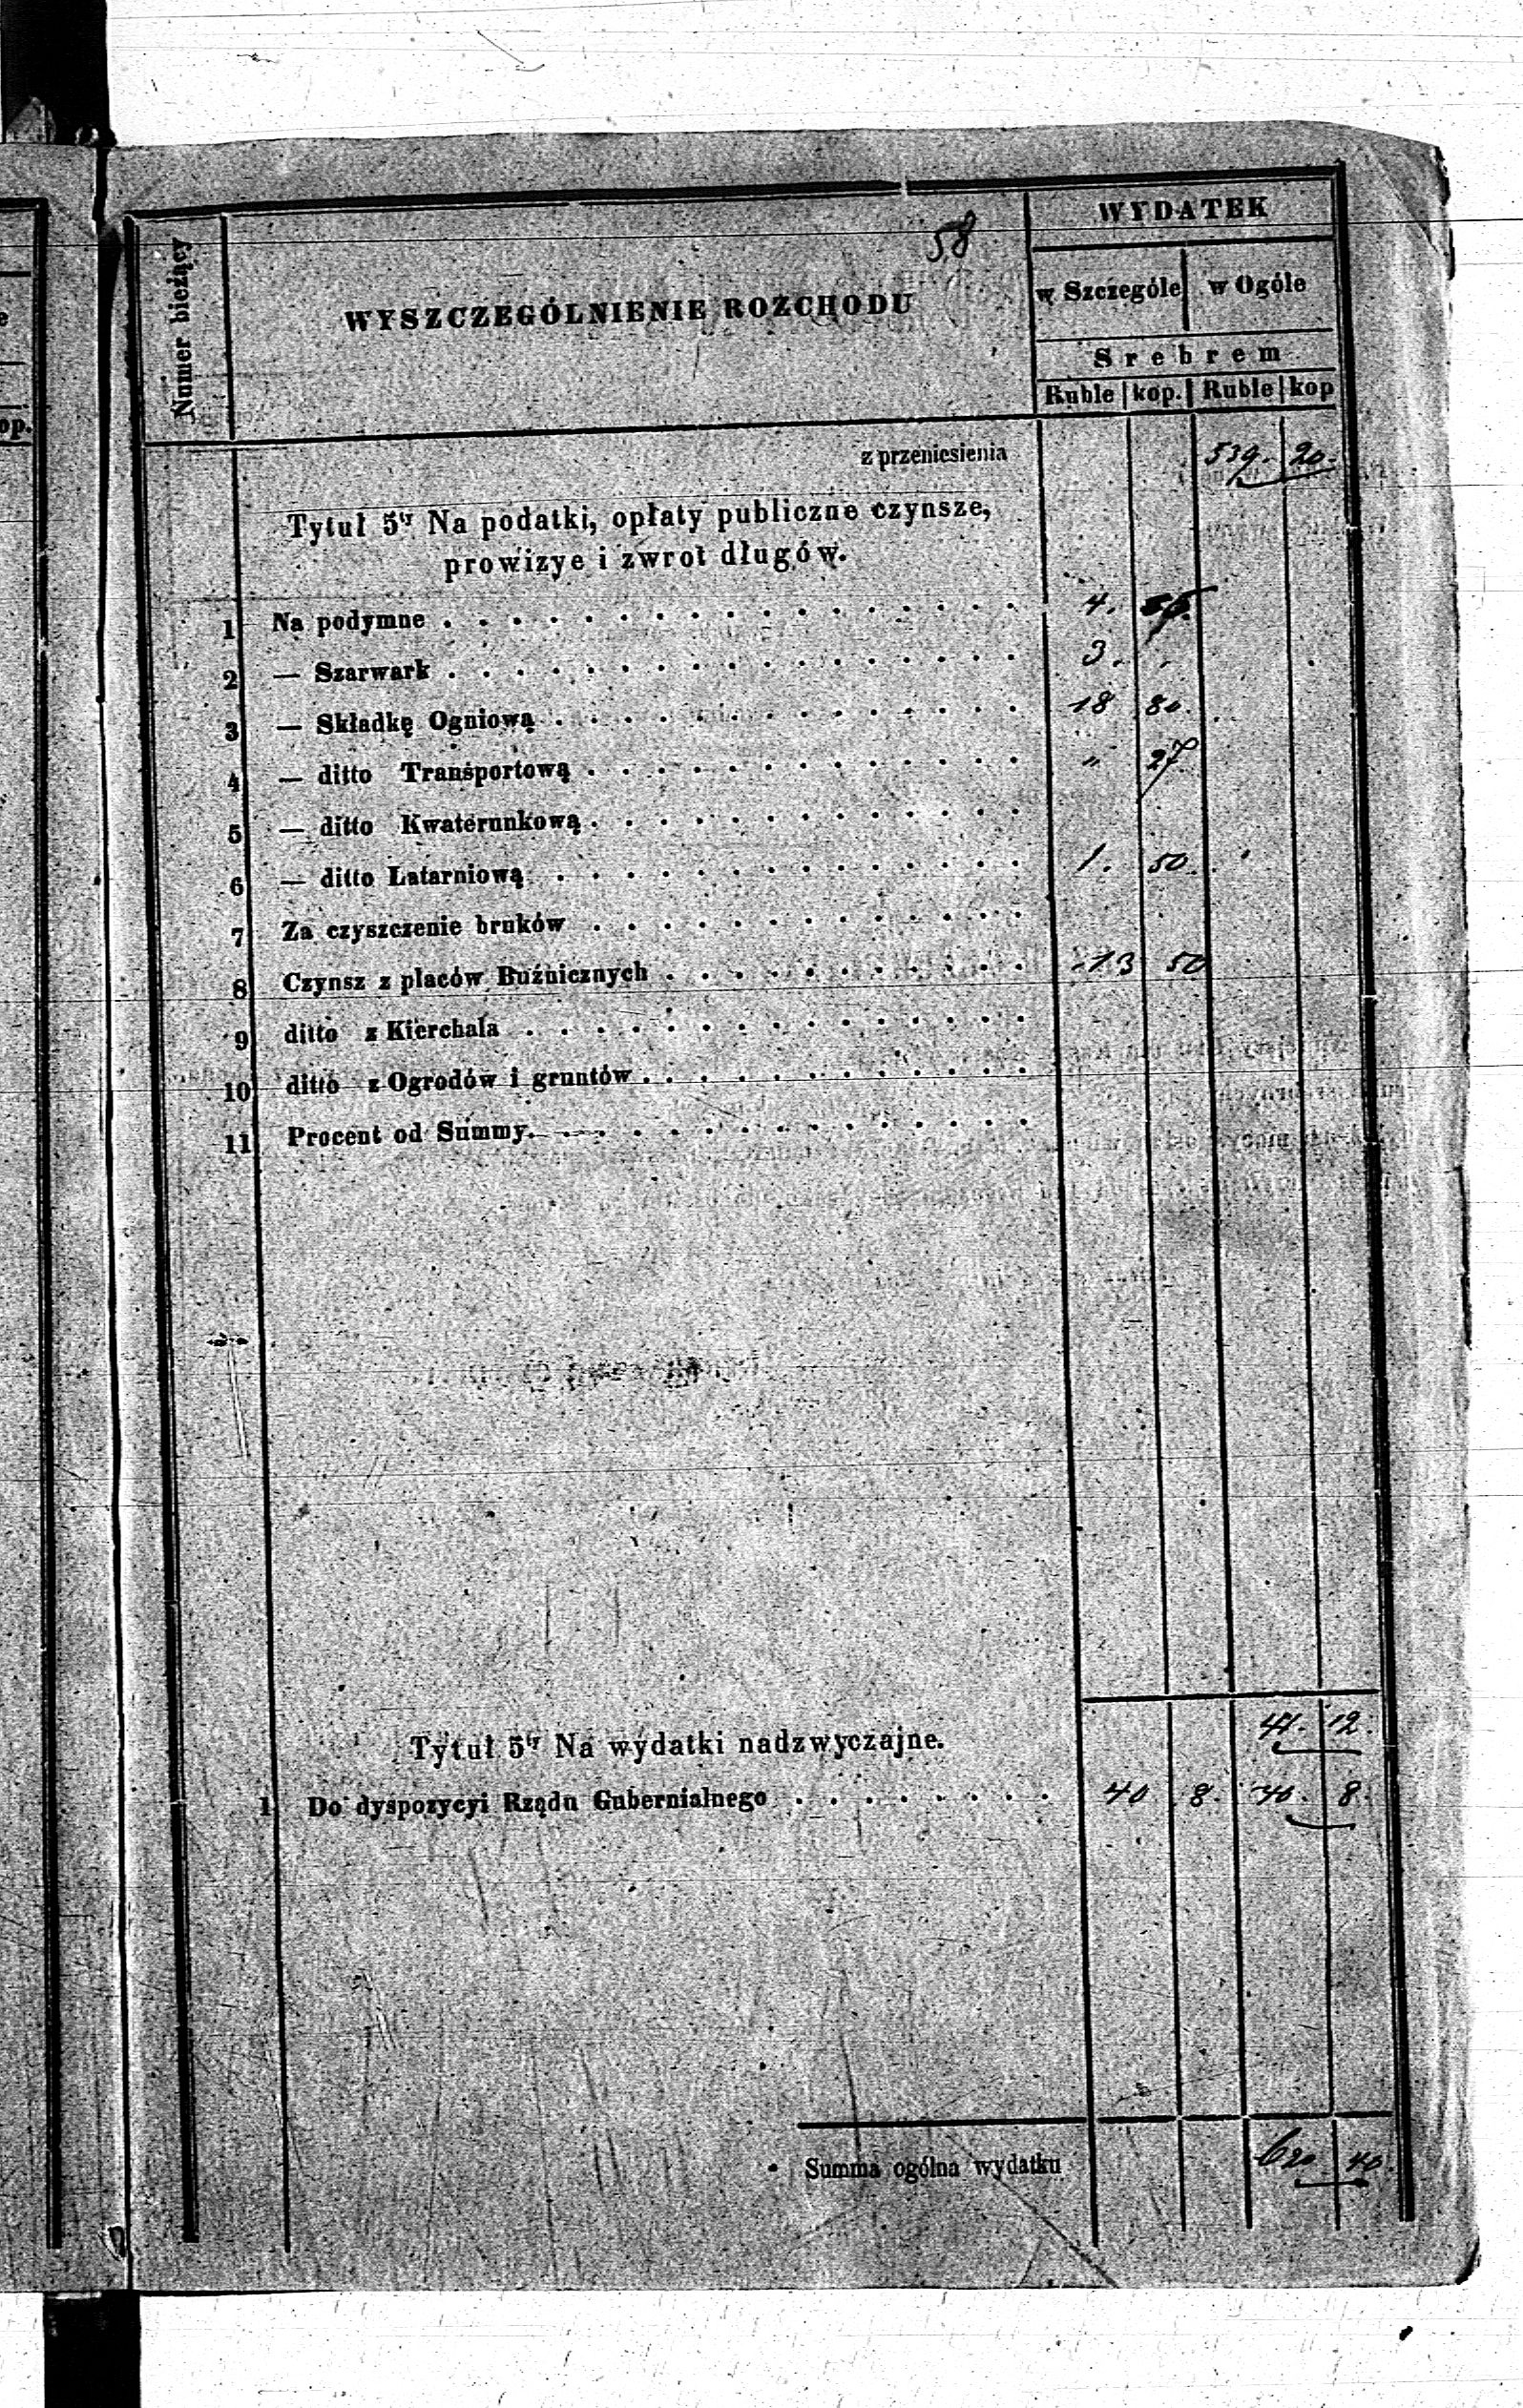 58
Numer bieżący
WYSZCZEGÓLNIENIE ROZCHODU
WYDATEK
w Szczególe w Ogóle
Srebrem
Ruble kop. Ruble kop
z przeniesienia 539. 20.
Tytuł 5ty Na podatki, opłaty publiczne czynsze,
prowizye i zwrot długów.
1 Na podymne . . . . . . . . . . . . . . . . . 4.
2 — Szarwark . . . . . . . . . . . . . . . . . 3. .
3 — Składkę Ogniową . . . . . . . . . . . . . . 18 80.
4 — ditto Transportową . . . . . . . . . . . . . " 27.
5 — ditto Kwaterunkową . . . . . . . . . . . . .
6 — ditto Latarniową . . . . . . . . . . . . . . 1. 50.
7 Za czyszczenie bruków . . . . . . . . . . . . .
8 Czynsz z placów Buźnicznych . . . . . . . . . . . 13 50
9 ditto z Kierchala . . . . . . . . . . . . . . .
10 ditto z Ogrodów i gruntów . . . . . . . . . . . .
11 Procent od Summy. . . . . . . . . . . . . . .
41. 12.
Tytuł 5ty Na wydatki nadzwyczajne.
1 Do dyspozycyi Rządu Gubernialnego . . . . . . . . 40 8. 40. 8.
Summa ogólna wydatku 620 40.